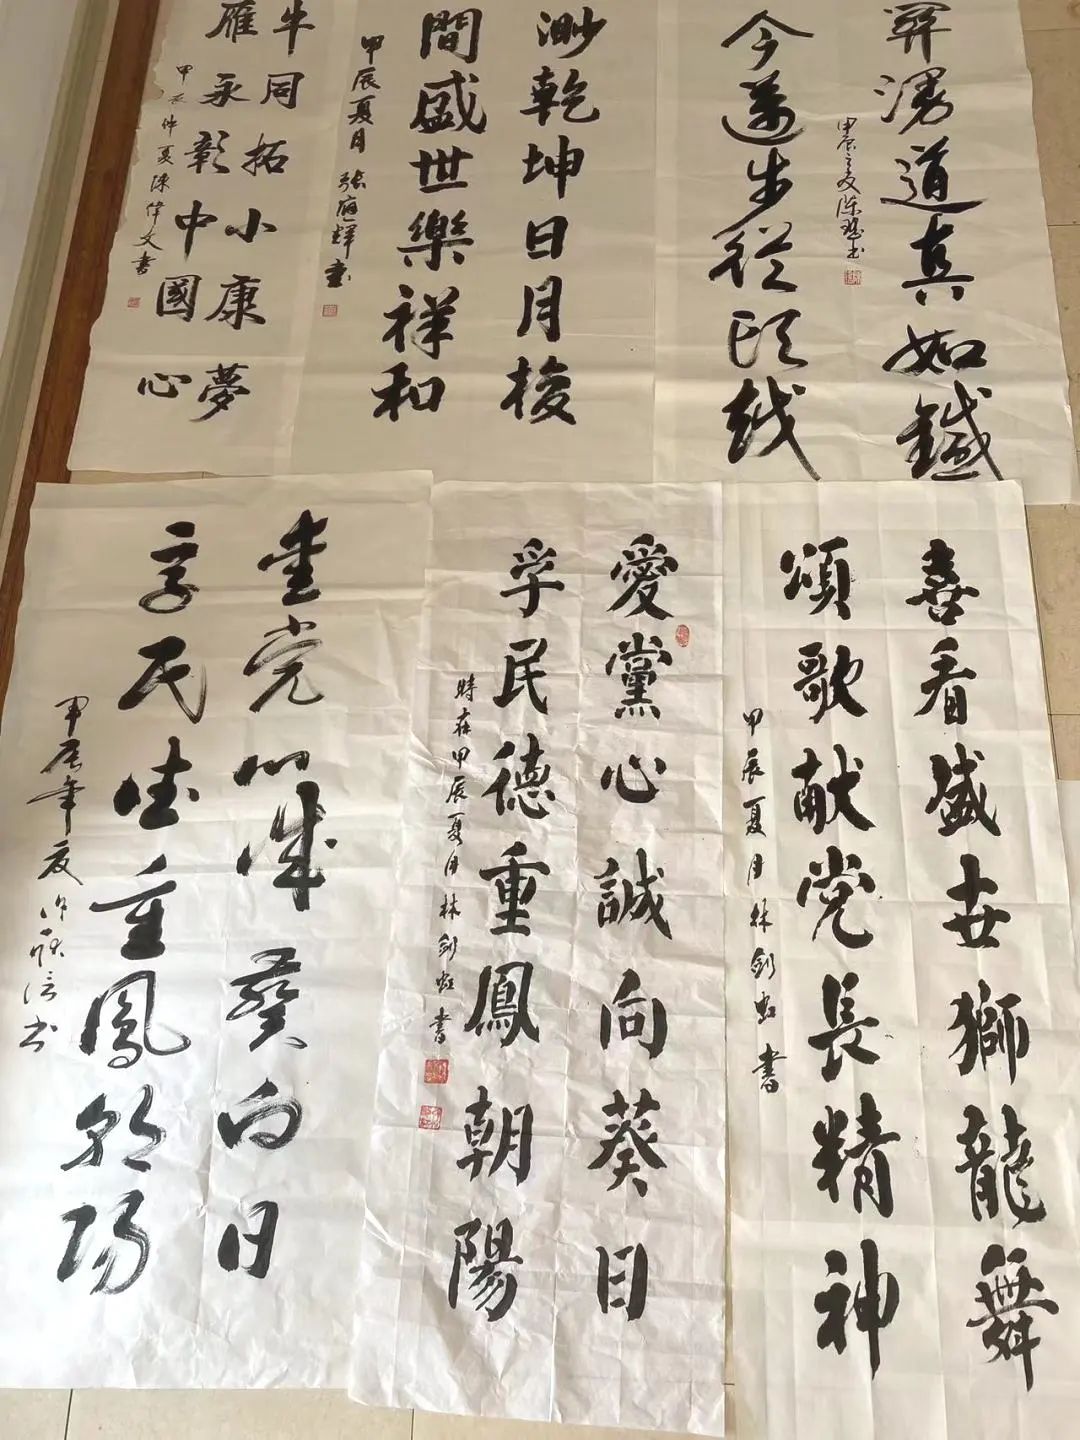 関漫道真如鐵
今邁步從頭越
甲辰之夏陈书
渺乾坤日月梭
間盛世樂祥和
甲辰夏月 張輝書
牛同拓小康夢
雁永彰中國心
甲辰仲夏陳偉文書
喜看盛世獅龍舞
頌歌献党長精神
甲辰夏月林劍虹書
愛黨心誠向葵日
孚民德重鳳朝陽
時在甲辰夏月林劍虹書
爱党心诚葵向日
孚民德重鳳朝陽
甲辰年夏许信书